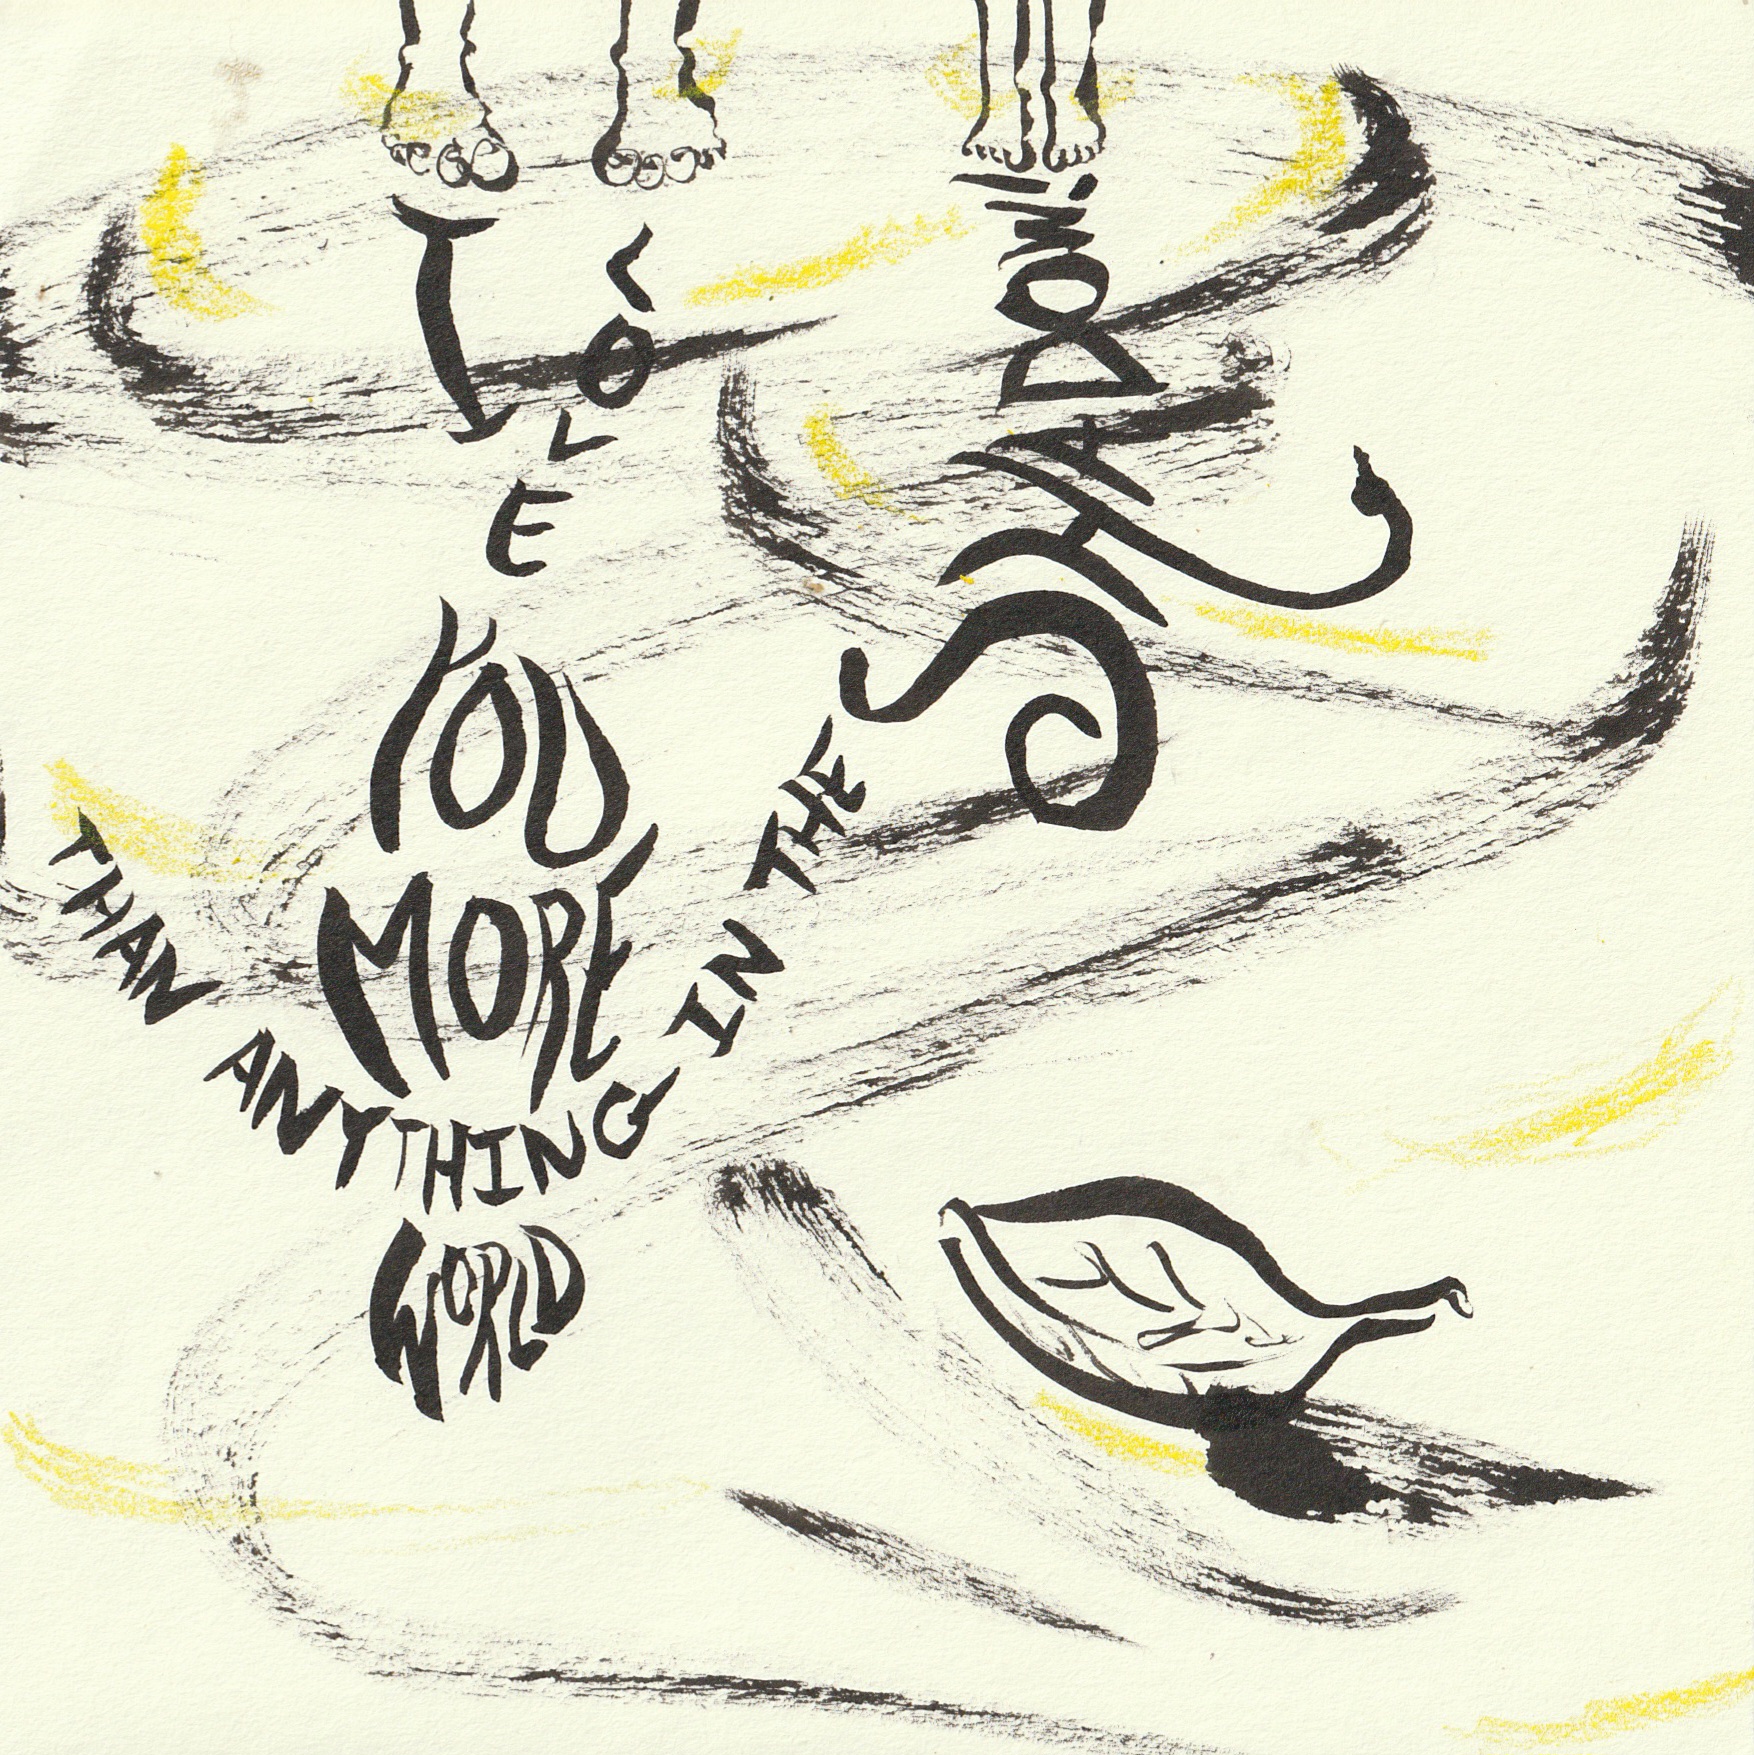 I
LOVE
YOU
MORE
THAN ANYTHING IN THE
WORLD
SHADOW!